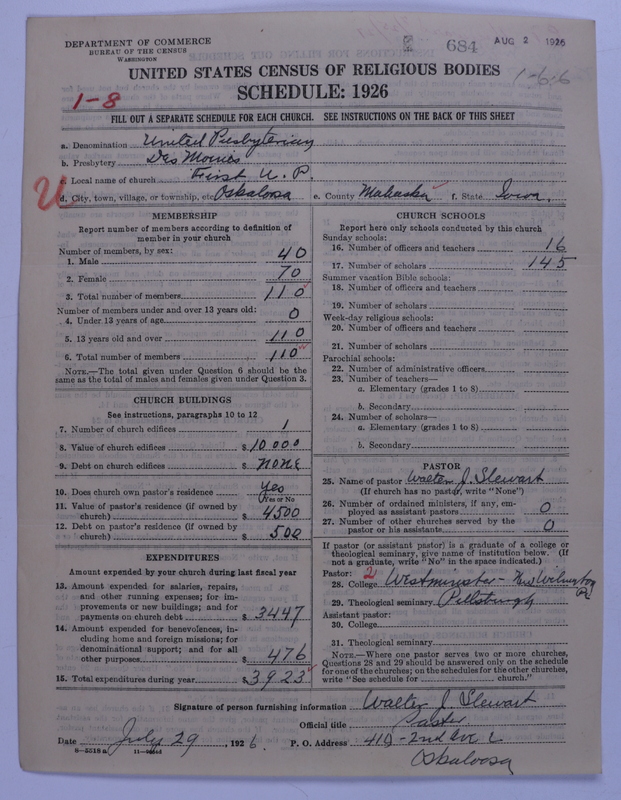 DEPARTMENT OF COMMERCE
BUREAU OF THE CENSUS
WASHINGTON
684
AUG 2 1926
1-6-6
UNITED STATES CENSUS OF RELIGIOUS BODIES
SCHEDULE: 1926
1-8
FILL OUT A SEPARATE SCHEDULE FOR EACH CHURCH. SEE INSTRUCTIONS ON THE BACK OF THIS SHEET
a. Denomination United Presbyterian
b. Presbytery Des Moines
c. Local name of church First U. P.
d. City, town, village, or township, etc Oskaloosa e. County Mahaska f. State Iowa.
MEMBERSHIP
Report number of members according to definition of
member in your church
Number of members, by sex:
1. Male 40
2. Female 70
3. Total number of members 110
Number of members under and over 13 years old:
4. Under 13 years of age 0
5. 13 years old and over 110
6. Total number of members 110
NOTE.—The total given under Question 6 should be
same as the total of males and females given under Question 3.
CHURCH BUILDINGS
See instructions, paragraphs 10 to 12
7. Number of church edifices 1
8. Value of church edifices $ 10000
9. Debt on church edifices $ none
10. Does church own pastor's residence yes
(Yes or No)
11. Value of pastor's residence (if owned by
church) $ 4500
12. Debt on pastor's residence (if owned by
church) $ 500
EXPENDITURES
Amount expended by your church during last fiscal year
13. Amount expended for salaries, repairs,
and other running expenses; for im-
provements or new buildings; and for
payments on church debt $ 3447
14. Amount expended for benevolences, in-
cluding home and foreign missions; for
denominational support; and for all
other purposes $ 476
15. Total expenditures during year $ 3923
CHURCH SCHOOLS
Report here only schools conducted by this church
Sunday schools:
16. Number of officers and teachers 16
17. Number of scholars 145
Summer vacation Bible schools:
18. Number of officers and teachers
19. Number of scholars
Week-day religious schools:
20. Number of officers and teachers
21. Number of scholars
Parochial schools:
22. Number of administrative officers
23. Number of teachers—
a. Elementary (grades 1 to 8)
b. Secondary
24. Number of scholars—
a. Elementary (grades 1 to 8)
b. Secondary
PASTOR
25. Name of pastor Walter J. Stewart
(If church has no pastor, write "None")
26. Number of ordained ministers, if any, em-
ployed as assistant pastors 0
27. Number of other churches served by the
pastor or his assistants 0
If pastor (or assistant pastor) is a graduate of a college or
theological seminary, give name of institution below. (If
not a graduate, write "No" in the space indicated.)
Pastor:
28. College Westminster - New Wilmington Pa
29. Theological seminary Pittsburgh
Assistant pastor:
30. College
31. Theological seminary
NOTE.—Where one pastor serves two or more churches,
Questions 28 and 29 should be answered only on the schedule
for one of the churches; on the schedules for the other churches,
write "See schedule for church."
Signature of person furnishing information Walter J. Stewart
Official title Pastor
Date July 29, 1926. P. O. Address 410 - 2nd Ave E
Oskaloosa
8-5518a